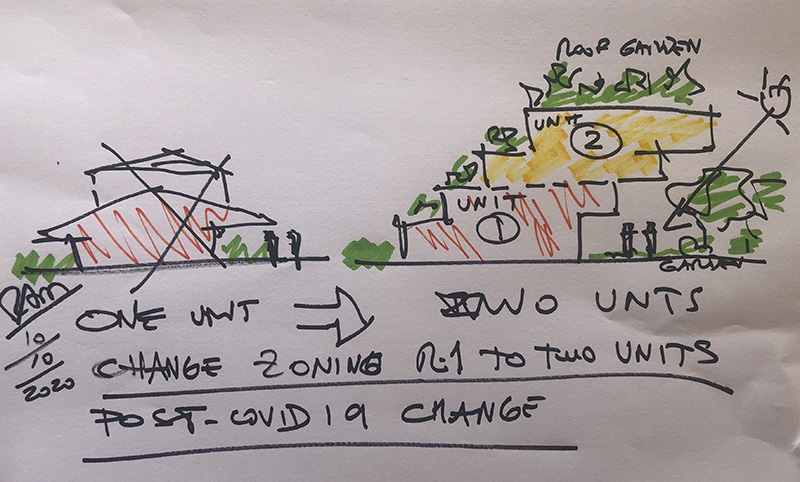 ROOF GARDEN
UNIT
2
UNIT
1
GARDEN
RAM
10
10
2020
ONE UNIT
TWO UNTS
CHANGE ZONING R-1 TO TWO UNITS
POST-COVID 19 CHANGE